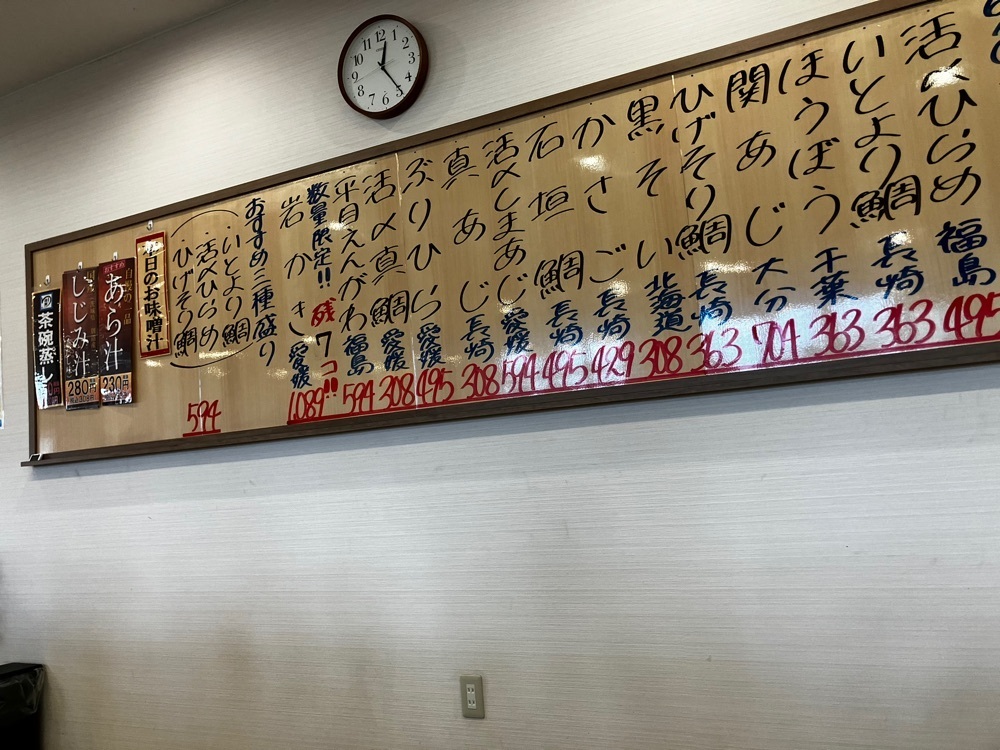 活〆ひらめ 福島 495
いとより鯛 長崎 363
ほうぼう 千葉 363
関あじ 大分 704
ひげそり鯛 長崎 363
黒そい 北海道 308
かさご 長崎 429
石垣鯛 長崎 495
活〆しまあじ 愛媛 594
真あじ 長崎 308
ぶりひら 愛媛 495
活〆真鯛 愛媛 308
平目えんがわ 福島 594
数量限定!! 残7コ!!
岩かき 愛媛 1,089
おすすめ三種盛り
(いとより鯛
・活〆ひらめ
・ひげそり鯛) 594
今日のお味噌汁
おすすめ
あら汁
230円
しじみ汁
280円
茶碗蒸し
12
1
2
3
4
5
6
7
8
9
10
11